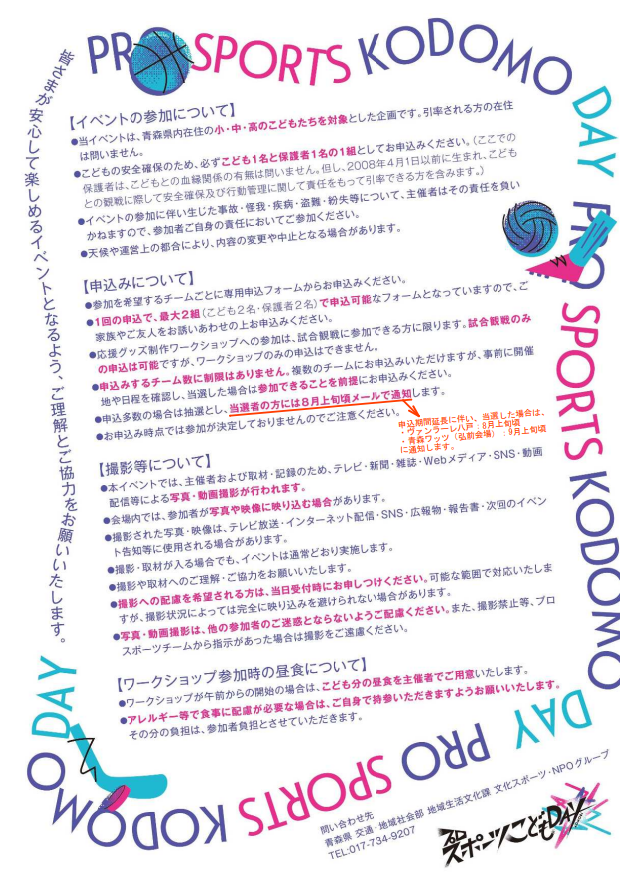 PRO SPORTS KODOMO DAY PRO SPORTS KODOMO DAY PRO SPORTS KODOMO DAY
皆さまが安心して楽しめるイベントとなるよう、ご理解とご協力をお願いいたします。
【イベントの参加について】
●当イベントは、青森県内在住の小・中・高のこどもたちを対象とした企画です。引率される方の在住
は問いません。
●こどもの安全確保のため、必ずこども1名と保護者1名の1組としてお申込みください。（ここでの
保護者は、こどもとの血縁関係の有無は問いません。但し、2008年4月1日以前に生まれ、こども
との観戦に際して安全確保及び行動管理に関して責任をもって引率できる方を含みます。）
●イベントの参加に伴い生じた事故・怪我・疾病・盗難・紛失等について、主催者はその責任を負い
かねますので、参加者ご自身の責任においてご参加ください。
●天候や運営上の都合により、内容の変更や中止となる場合があります。
【申込みについて】
●参加を希望するチームごとに専用申込フォームからお申込みください。
●1回の申込で、最大2組（こども2名・保護者2名）で申込可能なフォームとなっていますので、ご
家族やご友人をお誘いあわせの上お申込みください。
●応援グッズ制作ワークショップへの参加は、試合観戦に参加できる方に限ります。試合観戦のみ
の申込は可能ですが、ワークショップのみの申込はできません。
●申込みするチーム数に制限はありません。複数のチームにお申込みいただけますが、事前に開催
地や日程を確認し、当選した場合は参加できることを前提にお申込みください。
●申込多数の場合は抽選とし、当選者の方には8月上旬頃メールで通知します。
●お申込み時点では参加が決定しておりませんのでご注意ください。
申込期間延長に伴い、当選した場合は、
・ヴァンラーレ八戸：8月上旬頃
・青森ワッツ（弘前会場）：9月上旬頃
に通知します。
【撮影等について】
●本イベントでは、主催者および取材・記録のため、テレビ・新聞・雑誌・Webメディア・SNS・動画
配信等による写真・動画撮影が行われます。
●会場内では、参加者が写真や映像に映り込む場合があります。
●撮影された写真・映像は、テレビ放送・インターネット配信・SNS・広報物・報告書・次回のイベン
ト告知等に使用される場合があります。
●撮影・取材が入る場合でも、イベントは通常どおり実施します。
●撮影や取材へのご理解・ご協力をお願いいたします。
●撮影への配慮を希望される方は、当日受付時にお申しつけください。可能な範囲で対応いたしま
すが、撮影状況によっては完全に映り込みを避けられない場合があります。
●写真・動画撮影は、他の参加者のご迷惑とならないようご配慮ください。また、撮影禁止等、プロ
スポーツチームから指示があった場合は撮影をご遠慮ください。
【ワークショップ参加時の昼食について】
●ワークショップが午前からの開始の場合は、こども分の昼食を主催者でご用意いたします。
●アレルギー等で食事に配慮が必要な場合は、ご自身で持参いただきますようお願いいたします。
その分の負担は、参加者負担とさせていただきます。
問い合わせ先
青森県 交通・地域社会部 地域生活文化課 文化スポーツ・NPOグループ
TEL:017-734-9207
プロスポーツこどもDAY